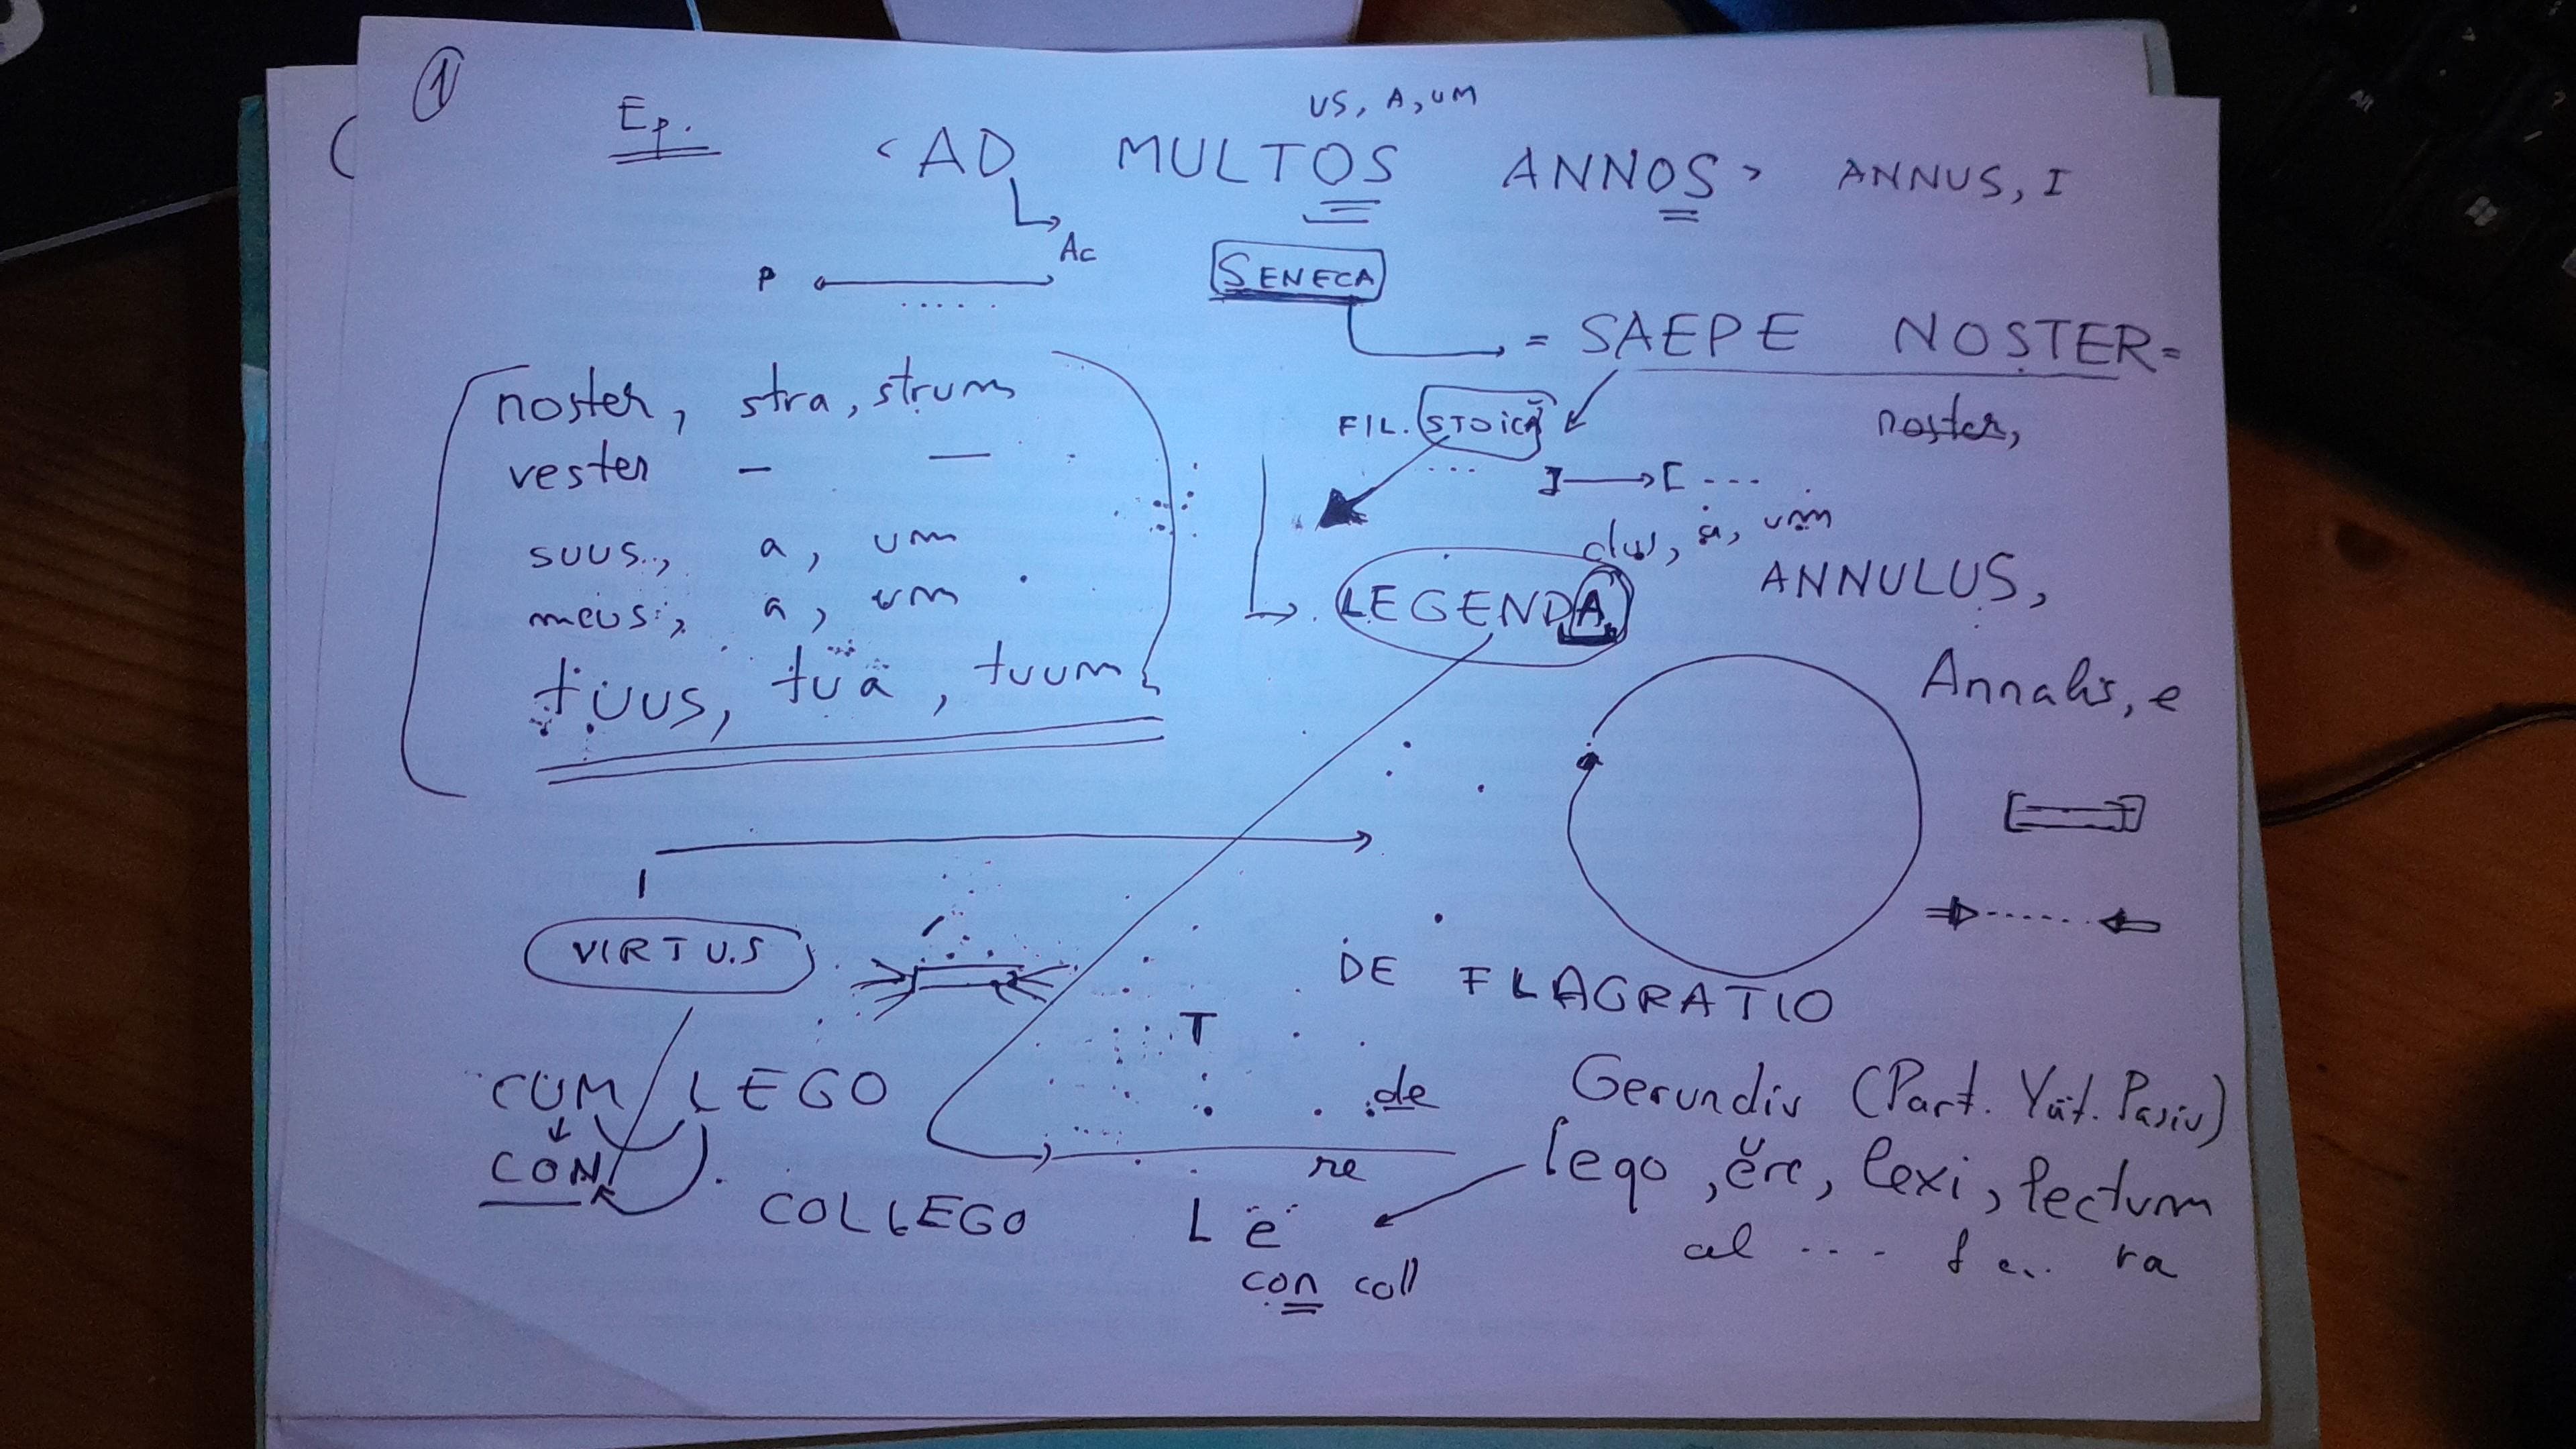 1
US, A, UM
Ep. < AD MULTOS ANNOS > ANNUS, I
Ac
P
SENECA
= SAEPE NOSTER =
noster, stra, strum
FIL. STOICĂ
noster,
vester — —
] → [ ---
suus, a, um
dus, a, um
ANNULUS,
meus, a, um
LEGENDA
tuus, tua, tuum
Annalis, e
VIRTUS
DE FLAGRATIO
T
CUM LEGO
de
Gerundiv (Part. Viit. Pasiv)
CON
re
lego, ĕre, lexi, lectum
COLLEGO
L e
al --- ra
con coll
Alt